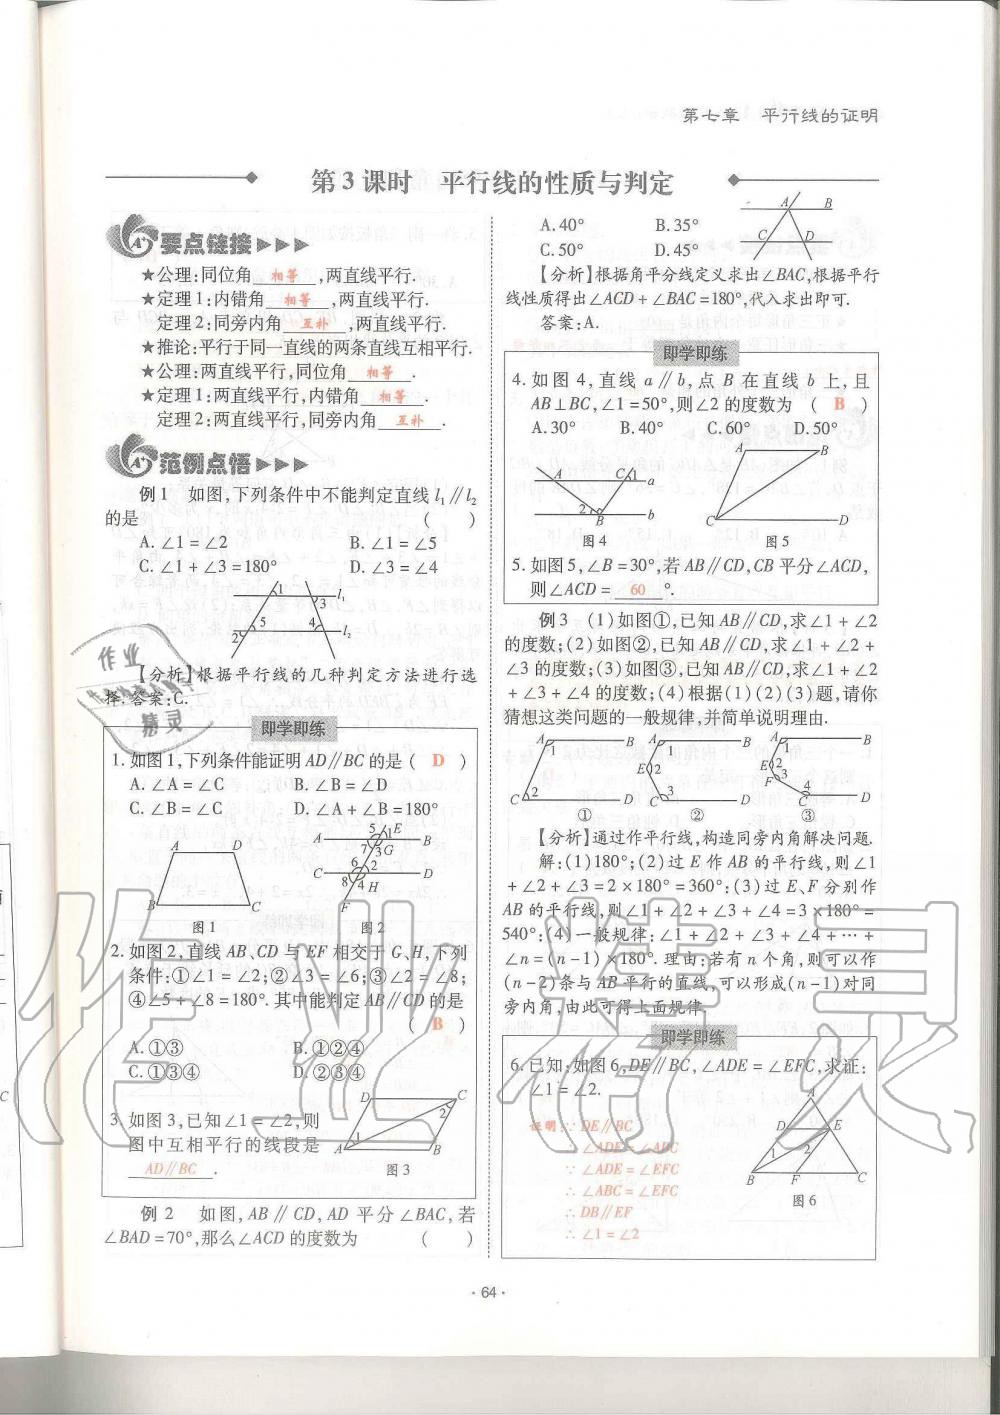 第七章 平行线的证明
第3课时 平行线的性质与判定
要点链接
★公理:同位角 相等 ,两直线平行.
★定理1:内错角 相等 ,两直线平行.
定理2:同旁内角 互补 ,两直线平行.
★推论:平行于同一直线的两条直线互相平行.
★公理:两直线平行,同位角 相等 .
★定理1:两直线平行,内错角 相等 .
定理2:两直线平行,同旁内角 互补 .
范例点悟
例1 如图,下列条件中不能判定直线l₁∥l₂
的是 ( )
A.∠1=∠2 B.∠1=∠5
C.∠1+∠3=180° D.∠3=∠4
1 3 l₁
2 5 4 l₂
【分析】根据平行线的几种判定方法进行选
择.答案:C.
即学即练
1.如图1,下列条件能证明AD∥BC的是( D )
A.∠A=∠C B.∠B=∠D
C.∠B=∠C D.∠A+∠B=180°
A D B C
图1
5 1 E A B 7 3 G C 6 2 D 8 4 H F
图2
2.如图2,直线AB、CD与EF相交于G、H,下列
条件:①∠1=∠2;②∠3=∠6;③∠2=∠8;
④∠5+∠8=180°.其中能判定AB∥CD的是
( B )
A.①③ B.①②④
C.①③④ D.②③④
3.如图3,已知∠1=∠2,则
图中互相平行的线段是
AD∥BC .
D C 2 1 A B
图3
例2 如图,AB∥CD,AD平分∠BAC,若
∠BAD=70°,那么∠ACD的度数为 ( )
A.40° B.35°
C.50° D.45°
A B C D
【分析】根据角平分线定义求出∠BAC,根据平行
线性质得出∠ACD+∠BAC=180°,代入求出即可.
答案:A.
即学即练
4.如图4,直线a∥b,点B在直线b上,且
AB⊥BC,∠1=50°,则∠2的度数为 ( B )
A.30° B.40° C.60° D.50°
A C 1 a 2 B b
图4
A B C D
图5
5.如图5,∠B=30°,若AB∥CD,CB平分∠ACD,
则∠ACD= 60 °.
例3 (1)如图①,已知AB∥CD,求∠1+∠2
的度数;(2)如图②,已知AB∥CD,求∠1+∠2+
∠3的度数;(3)如图③,已知AB∥CD,求∠1+∠2
+∠3+∠4的度数;(4)根据(1)(2)(3)题,请你
猜想这类问题的一般规律,并简单说明理由.
A B 1 2 C D
①
A B 1 E 2 3 C D
②
A B 1 E 2 F 3 4 C D
③
【分析】通过作平行线,构造同旁内角解决问题.
解:(1)180°;(2)过E作AB的平行线,则∠1
+∠2+∠3=2×180°=360°;(3)过E、F分别作
AB的平行线,则∠1+∠2+∠3+∠4=3×180°=
540°;(4)一般规律:∠1+∠2+∠3+∠4+⋯+
∠n=(n-1)×180°.理由:若有n个角,则可以作
(n-2)条与AB平行的直线,可以形成(n-1)对同
旁内角,由此可得上面规律.
即学即练
6.已知:如图6,DE∥BC,∠ADE=∠EFC,求证:
∠1=∠2.
证明:∵DE∥BC
∴∠ADE=∠ABC
∵∠ADE=∠EFC
∴∠ABC=∠EFC
∴DB∥EF
∴∠1=∠2
A D E 1 2 B F C
图6
·64·
作业精灵